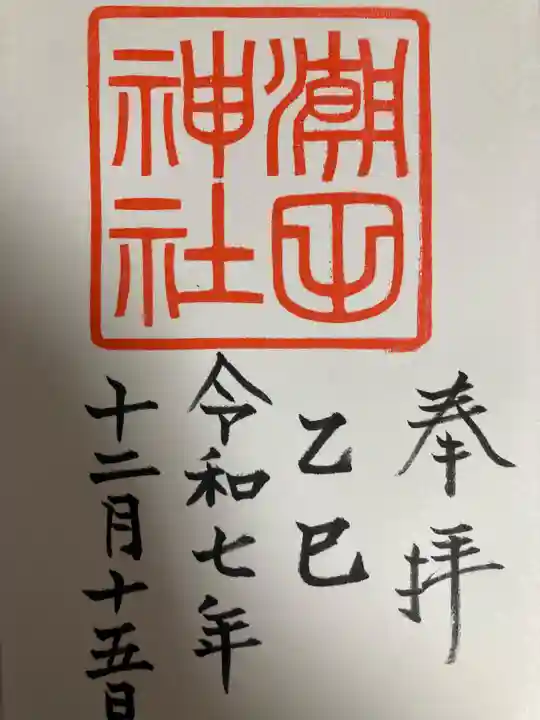 潮田
神社
奉拝
乙巳
令和七年
十二月十五日